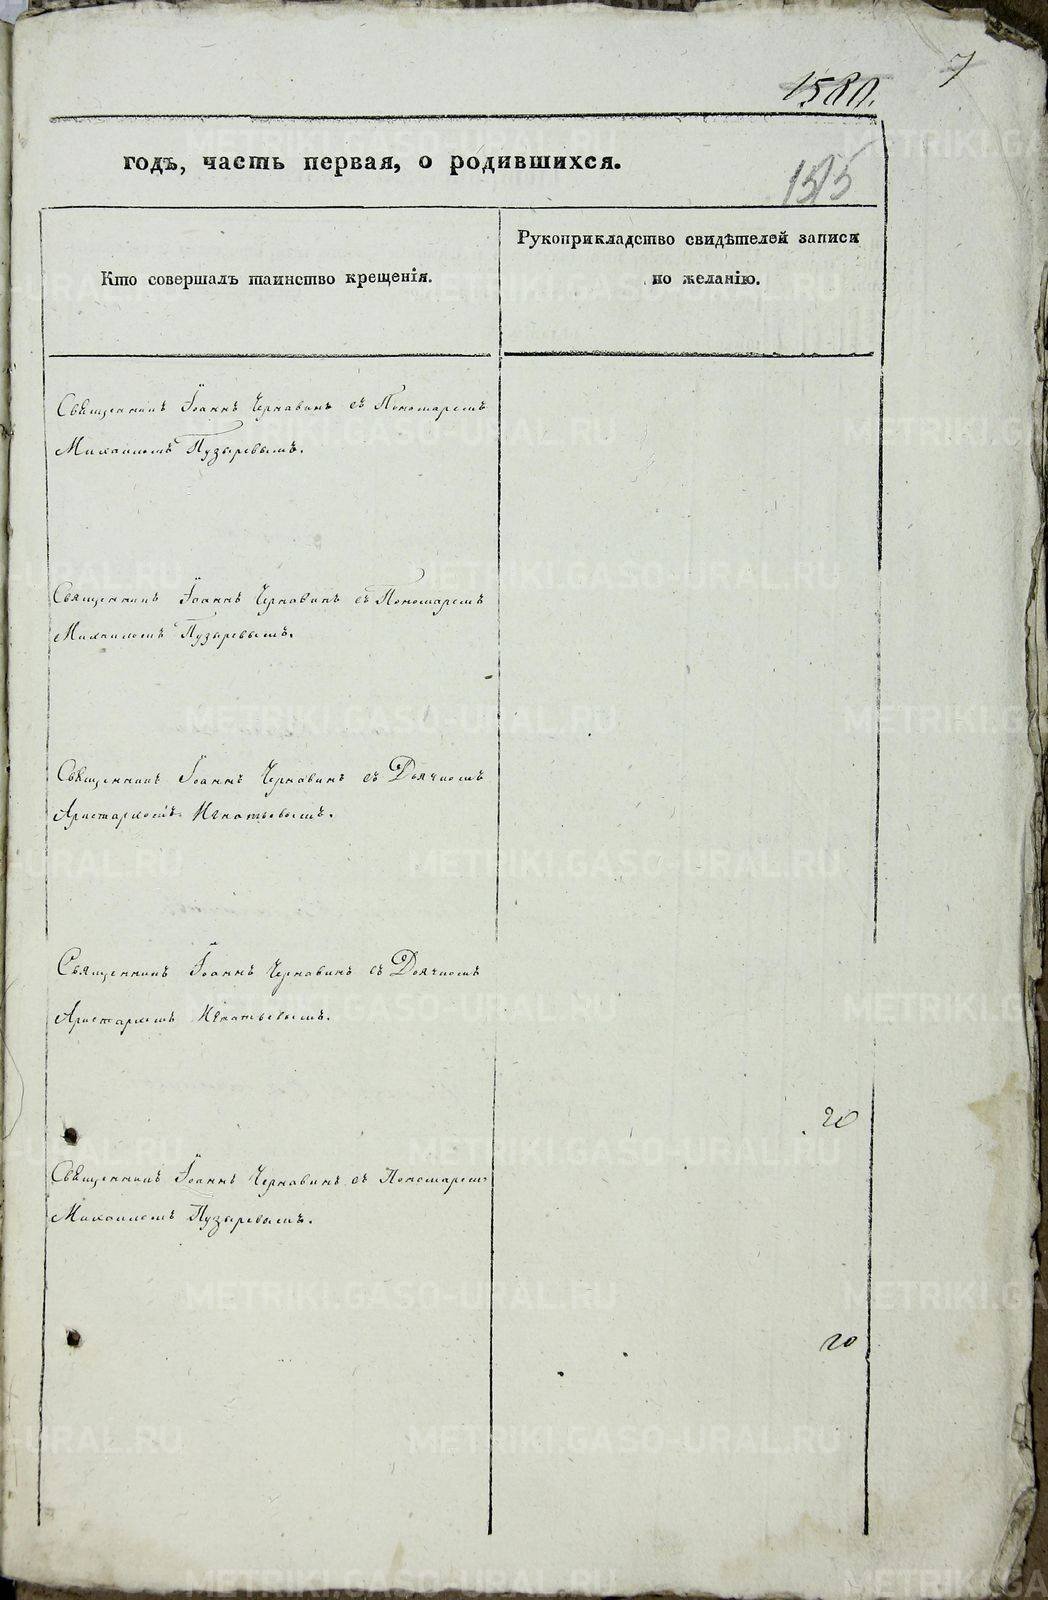 7
1580.
годъ, часть первая, о родившихся.
1515
Кто совершалъ таинство крещенія.
Рукоприкладство свидѣтелей записи
по желанію.
Священникъ Іоаннъ Чернавинъ съ Пономаремъ
Михаиломъ Пузыревымъ.
Священникъ Іоаннъ Чернавинъ съ Пономаремъ
Михаиломъ Пузыревымъ.
Священникъ Іоаннъ Чернавинъ съ Дьячкомъ
Аристархомъ Игнатьевымъ.
Священникъ Іоаннъ Чернавинъ съ Дьячкомъ
Аристархомъ Игнатьевымъ.
20
Священникъ Іоаннъ Чернавинъ съ Пономаремъ
Михаиломъ Пузыревымъ.
20
METRIKI.GASO-URAL.RU